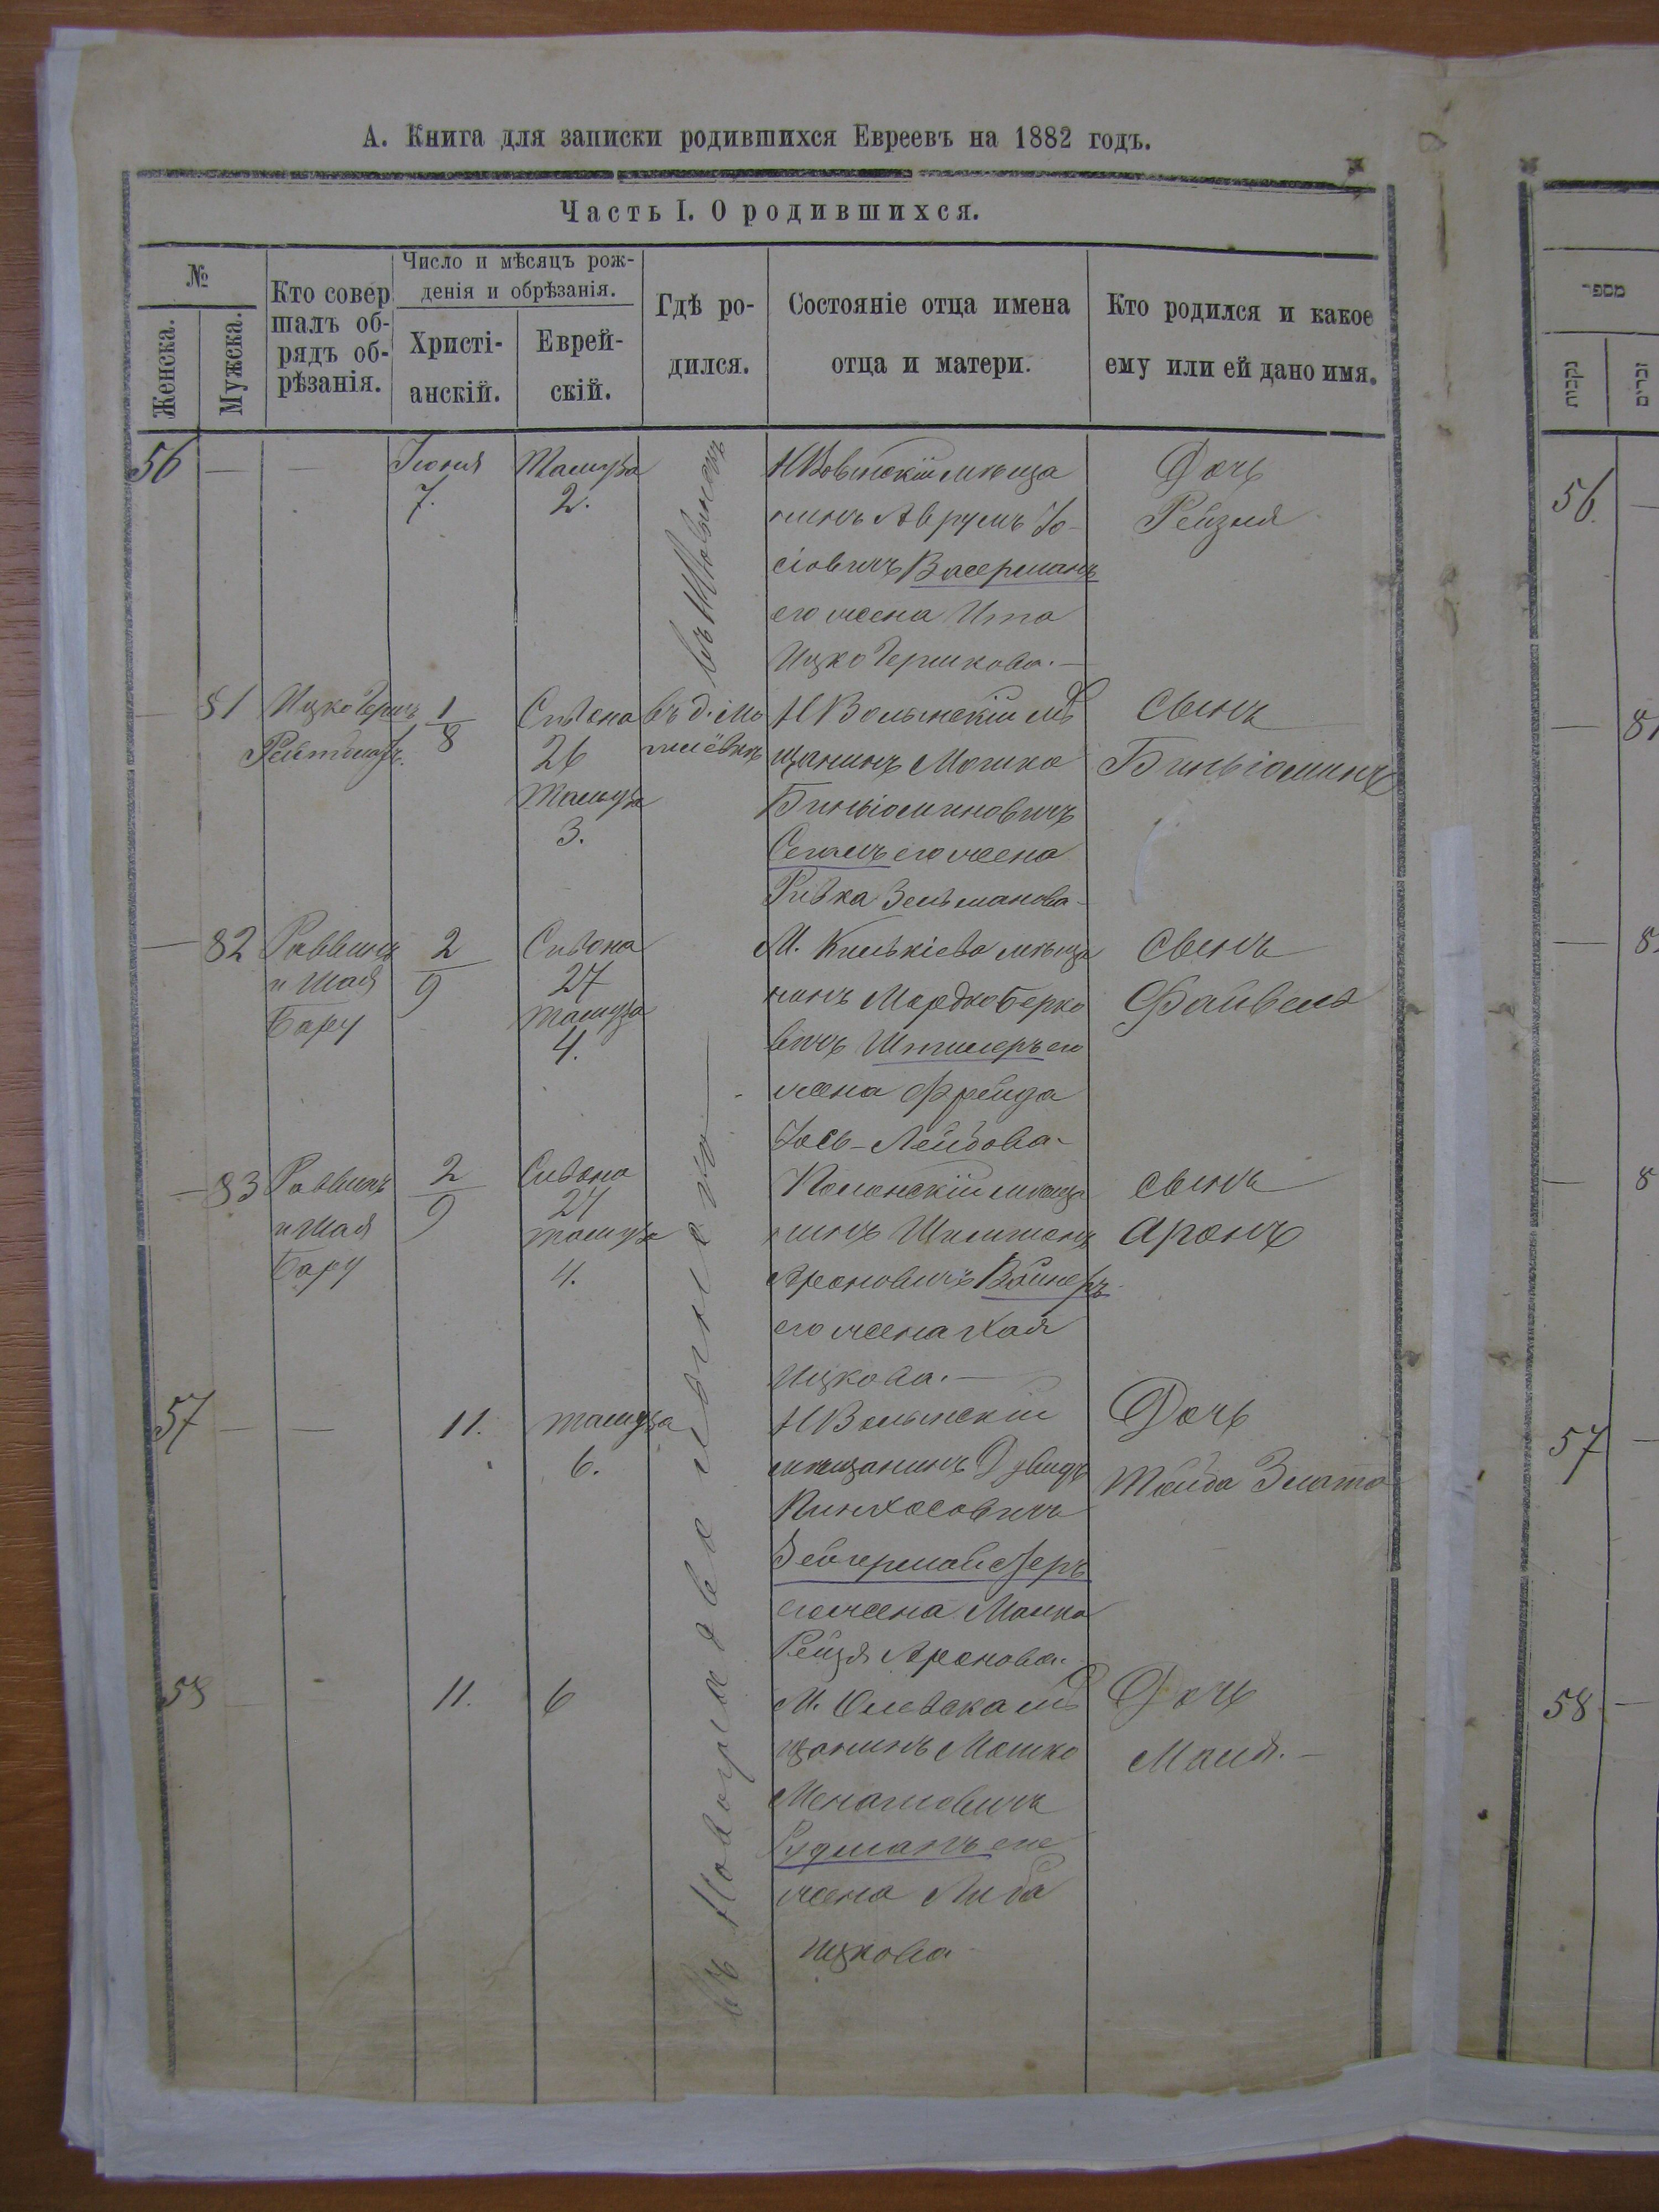 А. Книга для записки родившихся Евреевъ на 1882 годъ.
Часть I. О родившихся.
№
Женска.
Мужска.
Кто совер
шалъ об-
рядъ об-
рѣзанія.
Число и мѣсяцъ рож-
денія и обрѣзанія.
Христі-
анскій.
Еврей-
скій.
Гдѣ ро-
дился.
Состояніе отца имена
отца и матери.
Кто родился и какое
ему или ей дано имя.
56 — —
Іюня
7.
Тамуза
2.
НВолынскій мѣща
нинъ Аврумъ Іо-
сіовичъ Васерманъ
его жена Ита
Ицко Гершкова.—
Дочь
Рейзля
— 81
Ицко Герш
1
8
Сивона
26
Тамуза
3.
въ д.
НВолынскій мѣ
щанинъ Мошко
Биньіоминовичъ
Сегалъ его жена
Ривка Зельманова-
Сынъ
Биньіоминъ
— 82
Раввинъ
и Шая
Бару
2
9
Сивона
27
Тамуза
4.
М. Килькіева мѣща
нинъ Мордко Берко
вичъ Штилеръ его
жена Фрейда
Іось-Лейбова-
Сынъ
Файвель
— 83
Раввинъ
и Шая
Бару
2
9
Сивона
27
тамуза
4.
Полонскій мѣща
нинъ
Ароновичъ Вайнеръ
его жена Хая
Ицкова.—
сынъ
Аронъ
57 — —
11.
тамуза
6.
НВолынскій
мѣщанинъ Дувидъ
Пинхасовичъ
его жена
Рейзя Аронова.
Дочь
Тайба Злата
58 — -
11.
6
М. Олевска мѣ
щанинъ Мошко
Менашовичъ
его
жена Либа
Ицкова
Дочь
Маля.—
מספר
נקבות
זכרים
56. —
— 81
57 —
58 —